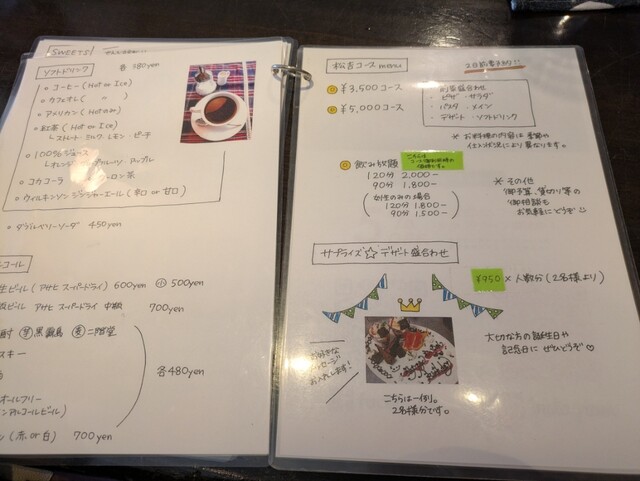 SWEETS
ソフトドリンク
各 380yen
・コーヒー (Hot or Ice)
・カフェオレ ( 〃 )
・アメリカン (Hot のみ)
・紅茶 (Hot or Ice)
ストレート・ミルク・レモン・ピーチ
・100%ジュース
・コカコーラ
・ウィルキンソン ジンジャーエール (辛口 or 甘口)
・ダブルベリーソーダ 450yen
コール
生ビール (アサヒ スーパードライ) 600yen 小 500yen
ビール アサヒ スーパードライ 中瓶 700yen
芋 黒霧島 麦 二階堂
スキー
各480yen
オールフリー
ンアルコールビール)
ン (赤 or 白) 700yen
松吉コース menu
2日前予約!!
¥3,500コース
¥5,000コース
・前菜盛合わせ
・ピザ ・サラダ
・パスタ ・メイン
・デザート ・ソフトドリンク
※お料理の内容は季節や
仕入れ状況により異なります。
飲み放題
120分 2,000-
90分 1,800-
女性のみの場合
120分 1,800-
90分 1,500-
※その他
御予算、貸切り等の
御相談も
お気軽にどうぞ
サプライズ☆デザート盛合わせ
¥950 × 人数分 (2名様より)
大切な方の誕生日や
記念日に ぜひどうぞ♡
お好きな
メッセージ
お入れします!
こちらは一例。
2名様分です。